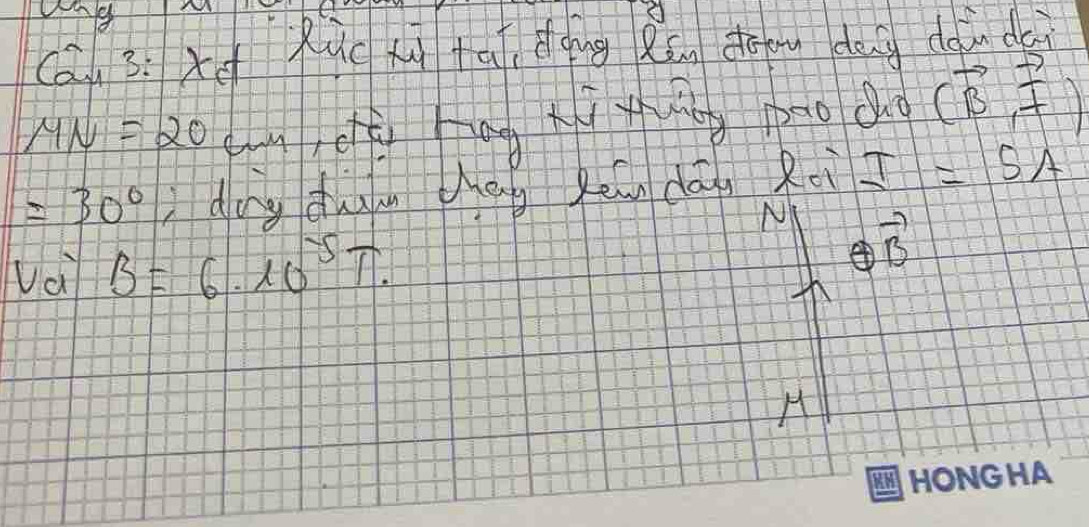 Câu 3: Xét lực từ tác dụng lên đoạn dây dẫn dài
MN = 20 cm, đặt trong từ trường sao cho (B⃗, I⃗)
= 30°; dòng điện chạy trên dây là I = 5A
Và B = 6.10⁻⁵ T.
N
⊕B⃗
M
HONG HA